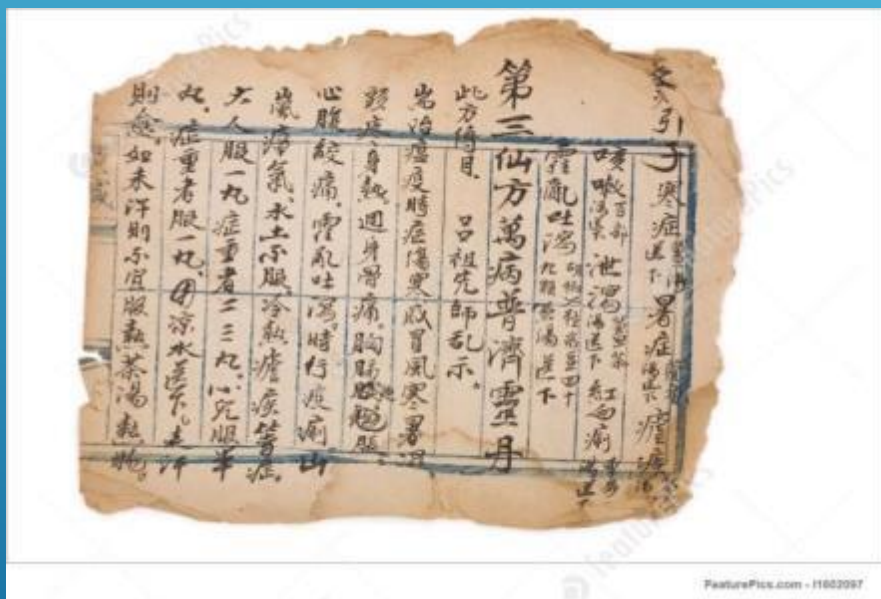 引子 寒症 送下 暑症 湯送下
咳嗽 百部 泄瀉 湯送下 紅白痢 湯送下
霍亂吐瀉 湯送下
第三仙方萬病普濟靈丹
此方傳自 呂祖先師乩示。
耑治瘟疫時症傷寒感冒風寒暑濕
頭疼身熱。週身骨痛。胸膈
心腹絞痛。霍亂吐瀉。時行疫痢山
嵐瘴氣。水土不服。冷熱瘧疾等症。
大人服一丸症重者二三丸。小兒服半
丸。症重者服一丸。用凉水送下。走汗
則愈。如未汗則不宜服熱茶湯熱物。
FeaturePics.com - I1602097